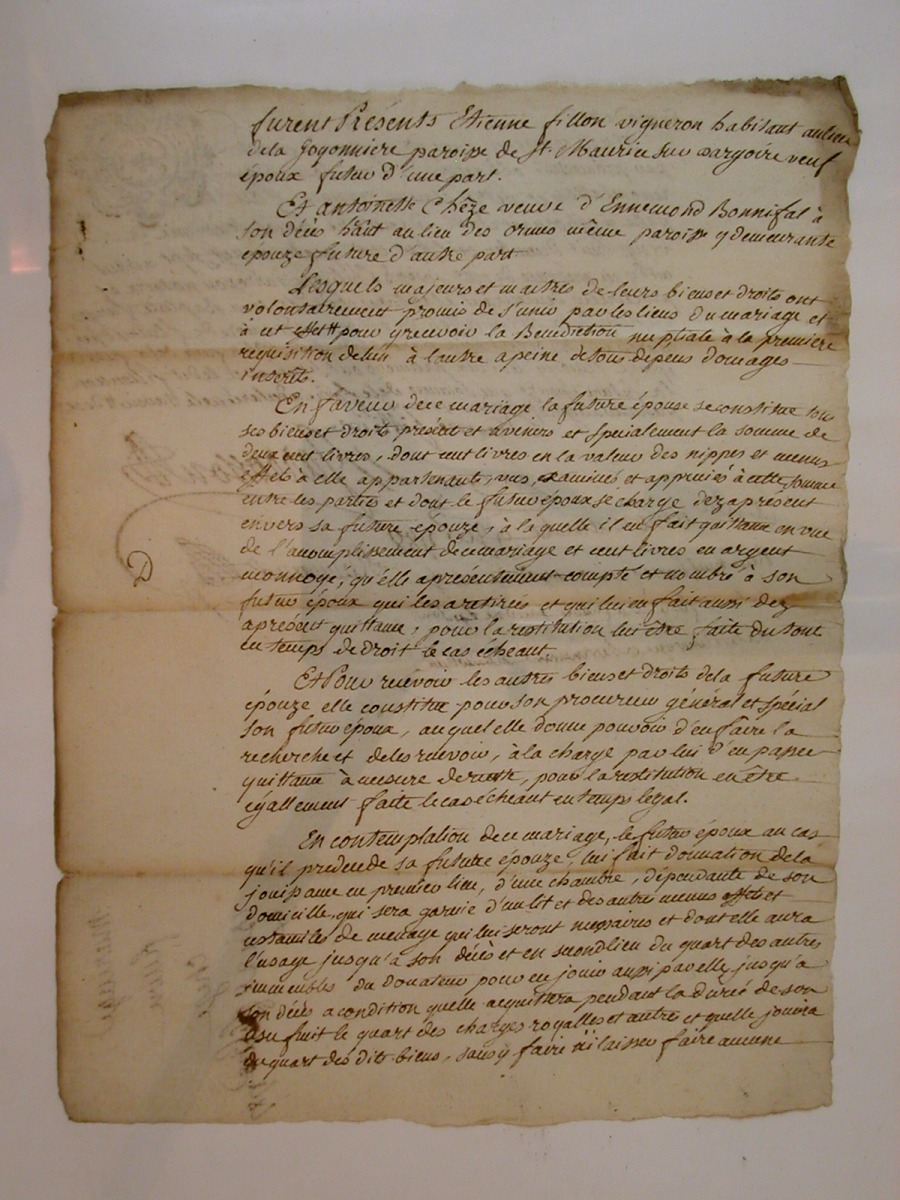 furent Présents Etienne fillon vigneron habitant au lieu
de la Jogonniere paroisse de St Maurice sur dargoire veuf
époux futur d'une part.
Et antoinette Chêze veuve d'Ennemond Bonnifal à
son décès hâut au lieu des ormes même paroisse y demeurante
épouze future d'autre part
Lesquels majeurs et maitres de leurs biens et droits ont
volontairement promis de s'unir par les liens du mariage et
à cet effett pour y recevoir la Benediction nuptiale à la premiere
requisition de lun à lautre a peine de tous depens domages
inserets.
En faveur de ce mariage la future épouse se constitue tous
ses biens et droits présent et avenirs et specialement la somme de
deux cent livres, dont cent livres en la valeur des nippes et menus
effets à elle appartenants, vus, examinés et appreciés à cette somme
entre les parties et dont le futur époux se charge dez aprésent
envers sa future épouze, à la quelle il en fait quittance en vue
de l'accomplissement de ce mariage et cent livres en argent
monnoyé, qu'elle a présentement compté et nombré à son
futur époux qui les a retirés et qui lui en fait aussi dez
aprésent quittance, pour la restitution lui être faite du tout
en temps de droit le cas écheant
Et Pour recevoir les autres biens et droits de la future
épouze elle constitue pour son procureur général et spécial
son futur époux, auquel elle donne pouvoir d'en faire la
recherche et de les recevoir, à la charge par lui d'en passer
quittance à mesure de recette, pour la restitution en être
egallement faite le cas écheant en temps legal.
En contemplation de ce mariage, le futur époux au cas
qu'il prédecede sa future épouze, lui fait donnation de la
jouissance en premier lieu, d'une chambre, dépendante de son
domicille, qui sera garnie d'un lit et des autres menus effets et
ustancilles de menage qui lui seront necessaires et dont elle aura
l'usage jusqu'a son décès et en second lieu du quart des autres
immeubles du donateur pour en jouir aussi par elle, jusqu'a
son décès a condition quelle acquittera pendant la durée de son
usufruit le quart des charges royalles et autres et quelle jouira
du quart des dits biens, sans y faire ni laisser faire aucune
D